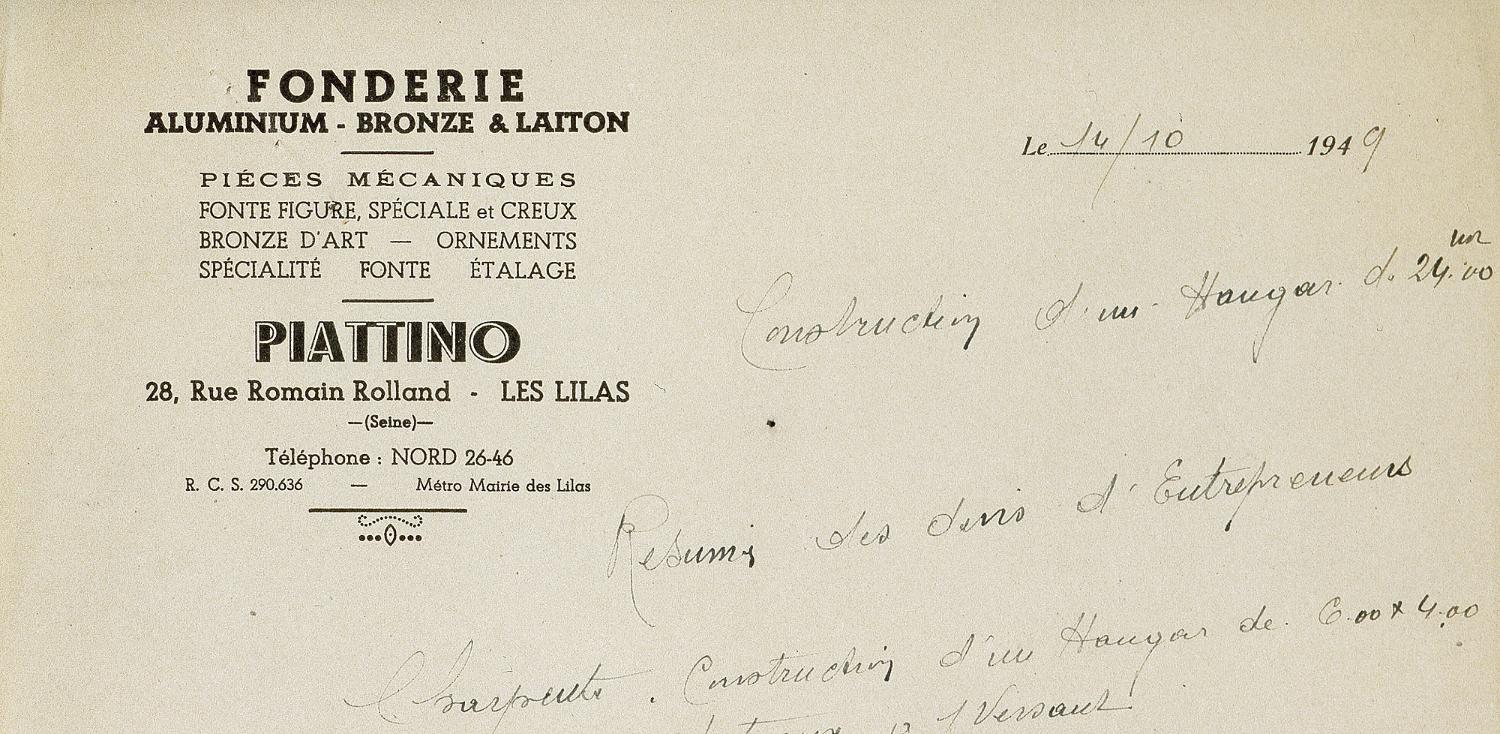 FONDERIE
ALUMINIUM - BRONZE & LAITON
PIÉCES MÉCANIQUES
FONTE FIGURE, SPÉCIALE et CREUX
BRONZE D'ART — ORNEMENTS
SPÉCIALITÉ FONTE ÉTALAGE
PIATTINO
28, Rue Romain Rolland - LES LILAS
—(Seine)—
Téléphone : NORD 26-46
R. C. S. 290.636 — Métro Mairie des Lilas
Le 14/10 1949
Construction d'un Hangar d. 24.00
Resumé des devis d'Entrepreneurs
Charpente. Construction d'un Hangar de 6.00 x 4.00
1 Versant